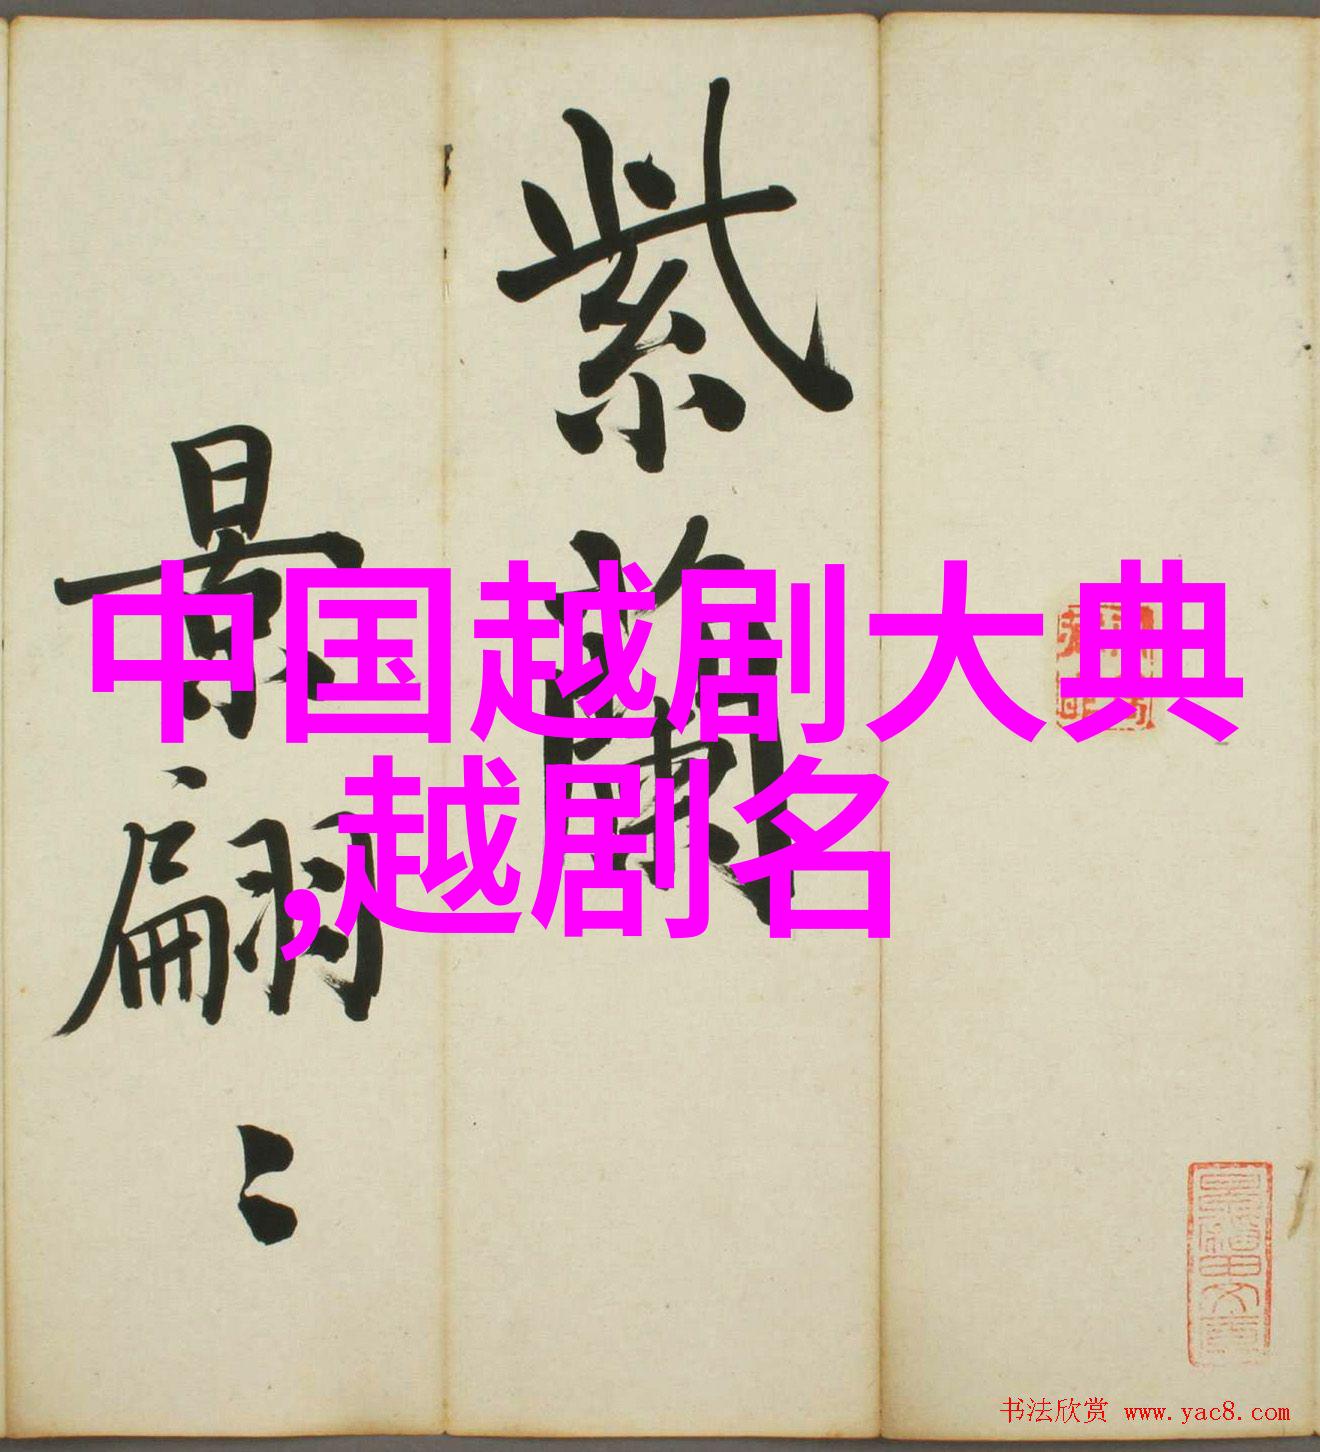 紫蘭
景翩〻
中国越剧大典
,越剧名
书法欣赏 www.yac8.com